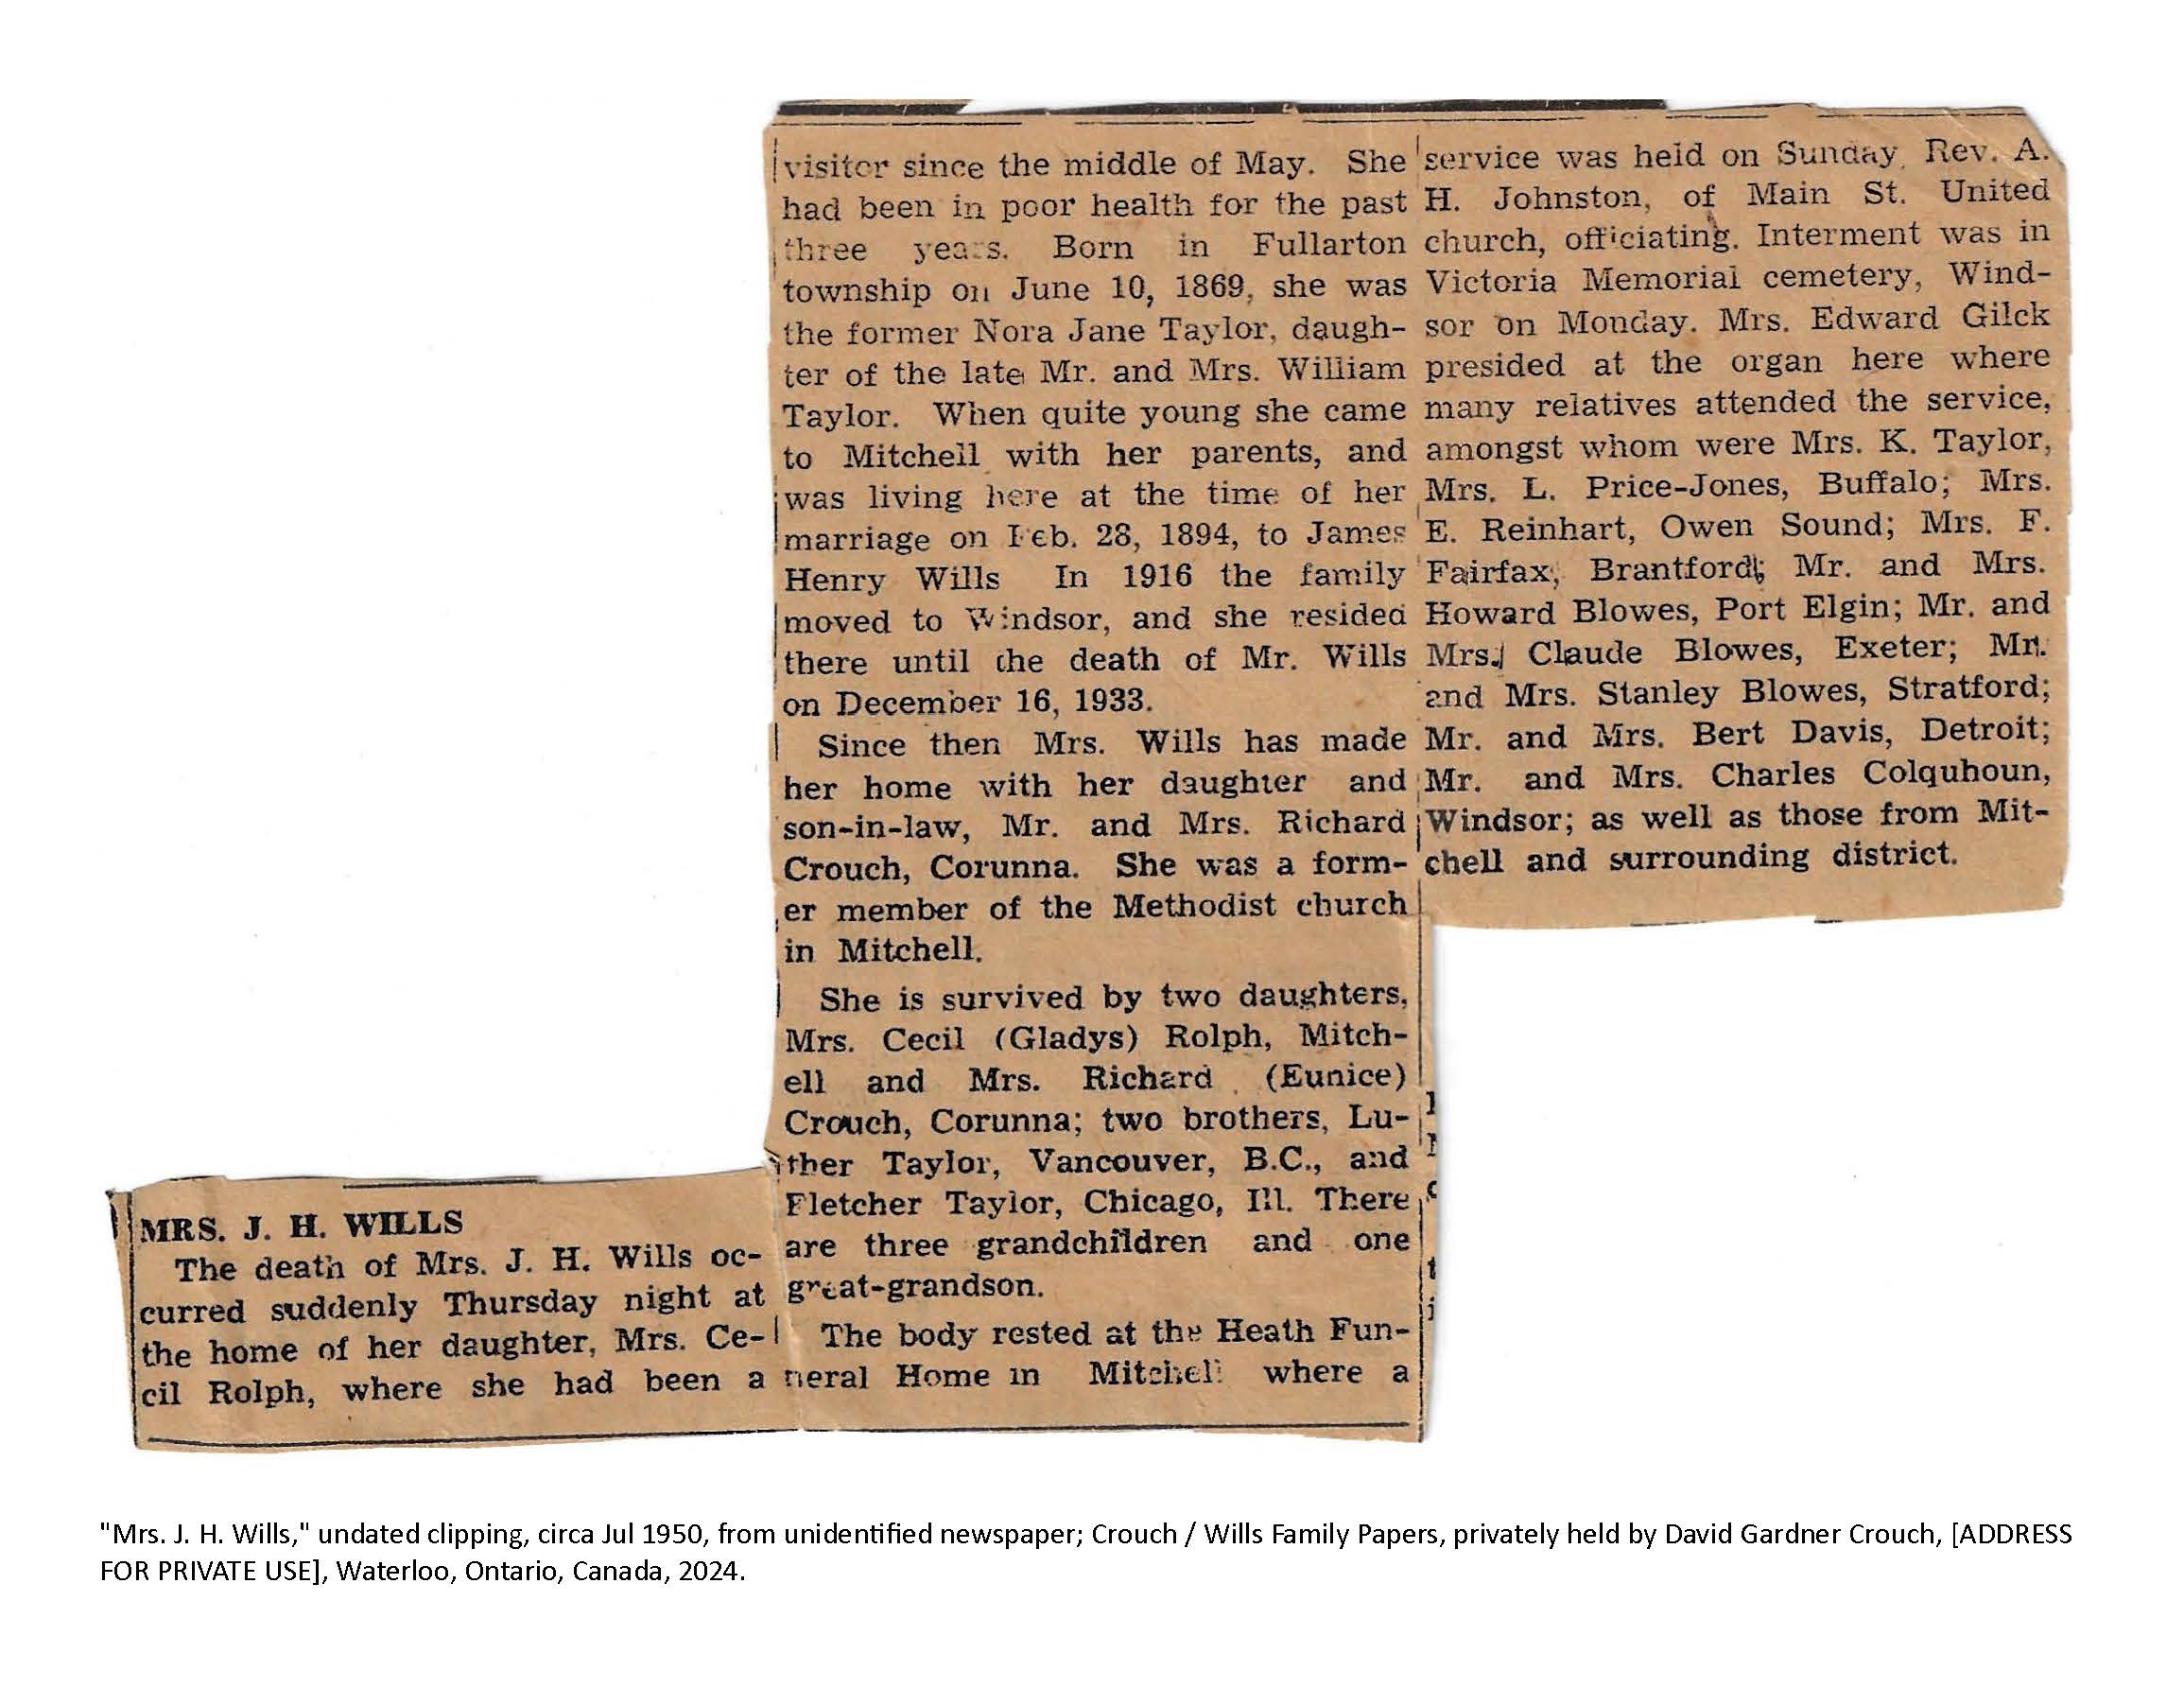 MRS. J. H. WILLS
The death of Mrs. J. H. Wills oc-
curred suddenly Thursday night at
the home of her daughter, Mrs. Ce-
cil Rolph, where she had been a
visitor since the middle of May. She
had been in poor health for the past
three years. Born in Fullarton
township on June 10, 1869, she was
the former Nora Jane Taylor, daugh-
ter of the late Mr. and Mrs. William
Taylor. When quite young she came
to Mitchell with her parents, and
was living here at the time of her
marriage on Feb. 28, 1894, to James
Henry Wills In 1916 the family
moved to Windsor, and she resided
there until the death of Mr. Wills
on December 16, 1933.
Since then Mrs. Wills has made
her home with her daughter and
son-in-law, Mr. and Mrs. Richard
Crouch, Corunna. She was a form-
er member of the Methodist church
in Mitchell.
She is survived by two daughters,
Mrs. Cecil (Gladys) Rolph, Mitch-
ell and Mrs. Richard (Eunice)
Crouch, Corunna; two brothers, Lu-
ther Taylor, Vancouver, B.C., and
Fletcher Taylor, Chicago, Ill. There
are three grandchildren and one
great-grandson.
The body rested at the Heath Fun-
neral Home in Mitchell where a
service was held on Sunday, Rev. A.
H. Johnston, of Main St. United
church, officiating. Interment was in
Victoria Memorial cemetery, Wind-
sor on Monday. Mrs. Edward Gilck
presided at the organ here where
many relatives attended the service,
amongst whom were Mrs. K. Taylor,
Mrs. L. Price-Jones, Buffalo; Mrs.
E. Reinhart, Owen Sound; Mrs. F.
Fairfax, Brantford; Mr. and Mrs.
Howard Blowes, Port Elgin; Mr. and
Mrs. Claude Blowes, Exeter; Mr.
and Mrs. Stanley Blowes, Stratford;
Mr. and Mrs. Bert Davis, Detroit;
Mr. and Mrs. Charles Colquhoun,
Windsor; as well as those from Mit-
chell and surrounding district.
"Mrs. J. H. Wills," undated clipping, circa Jul 1950, from unidentified newspaper; Crouch / Wills Family Papers, privately held by David Gardner Crouch, [ADDRESS
FOR PRIVATE USE], Waterloo, Ontario, Canada, 2024.